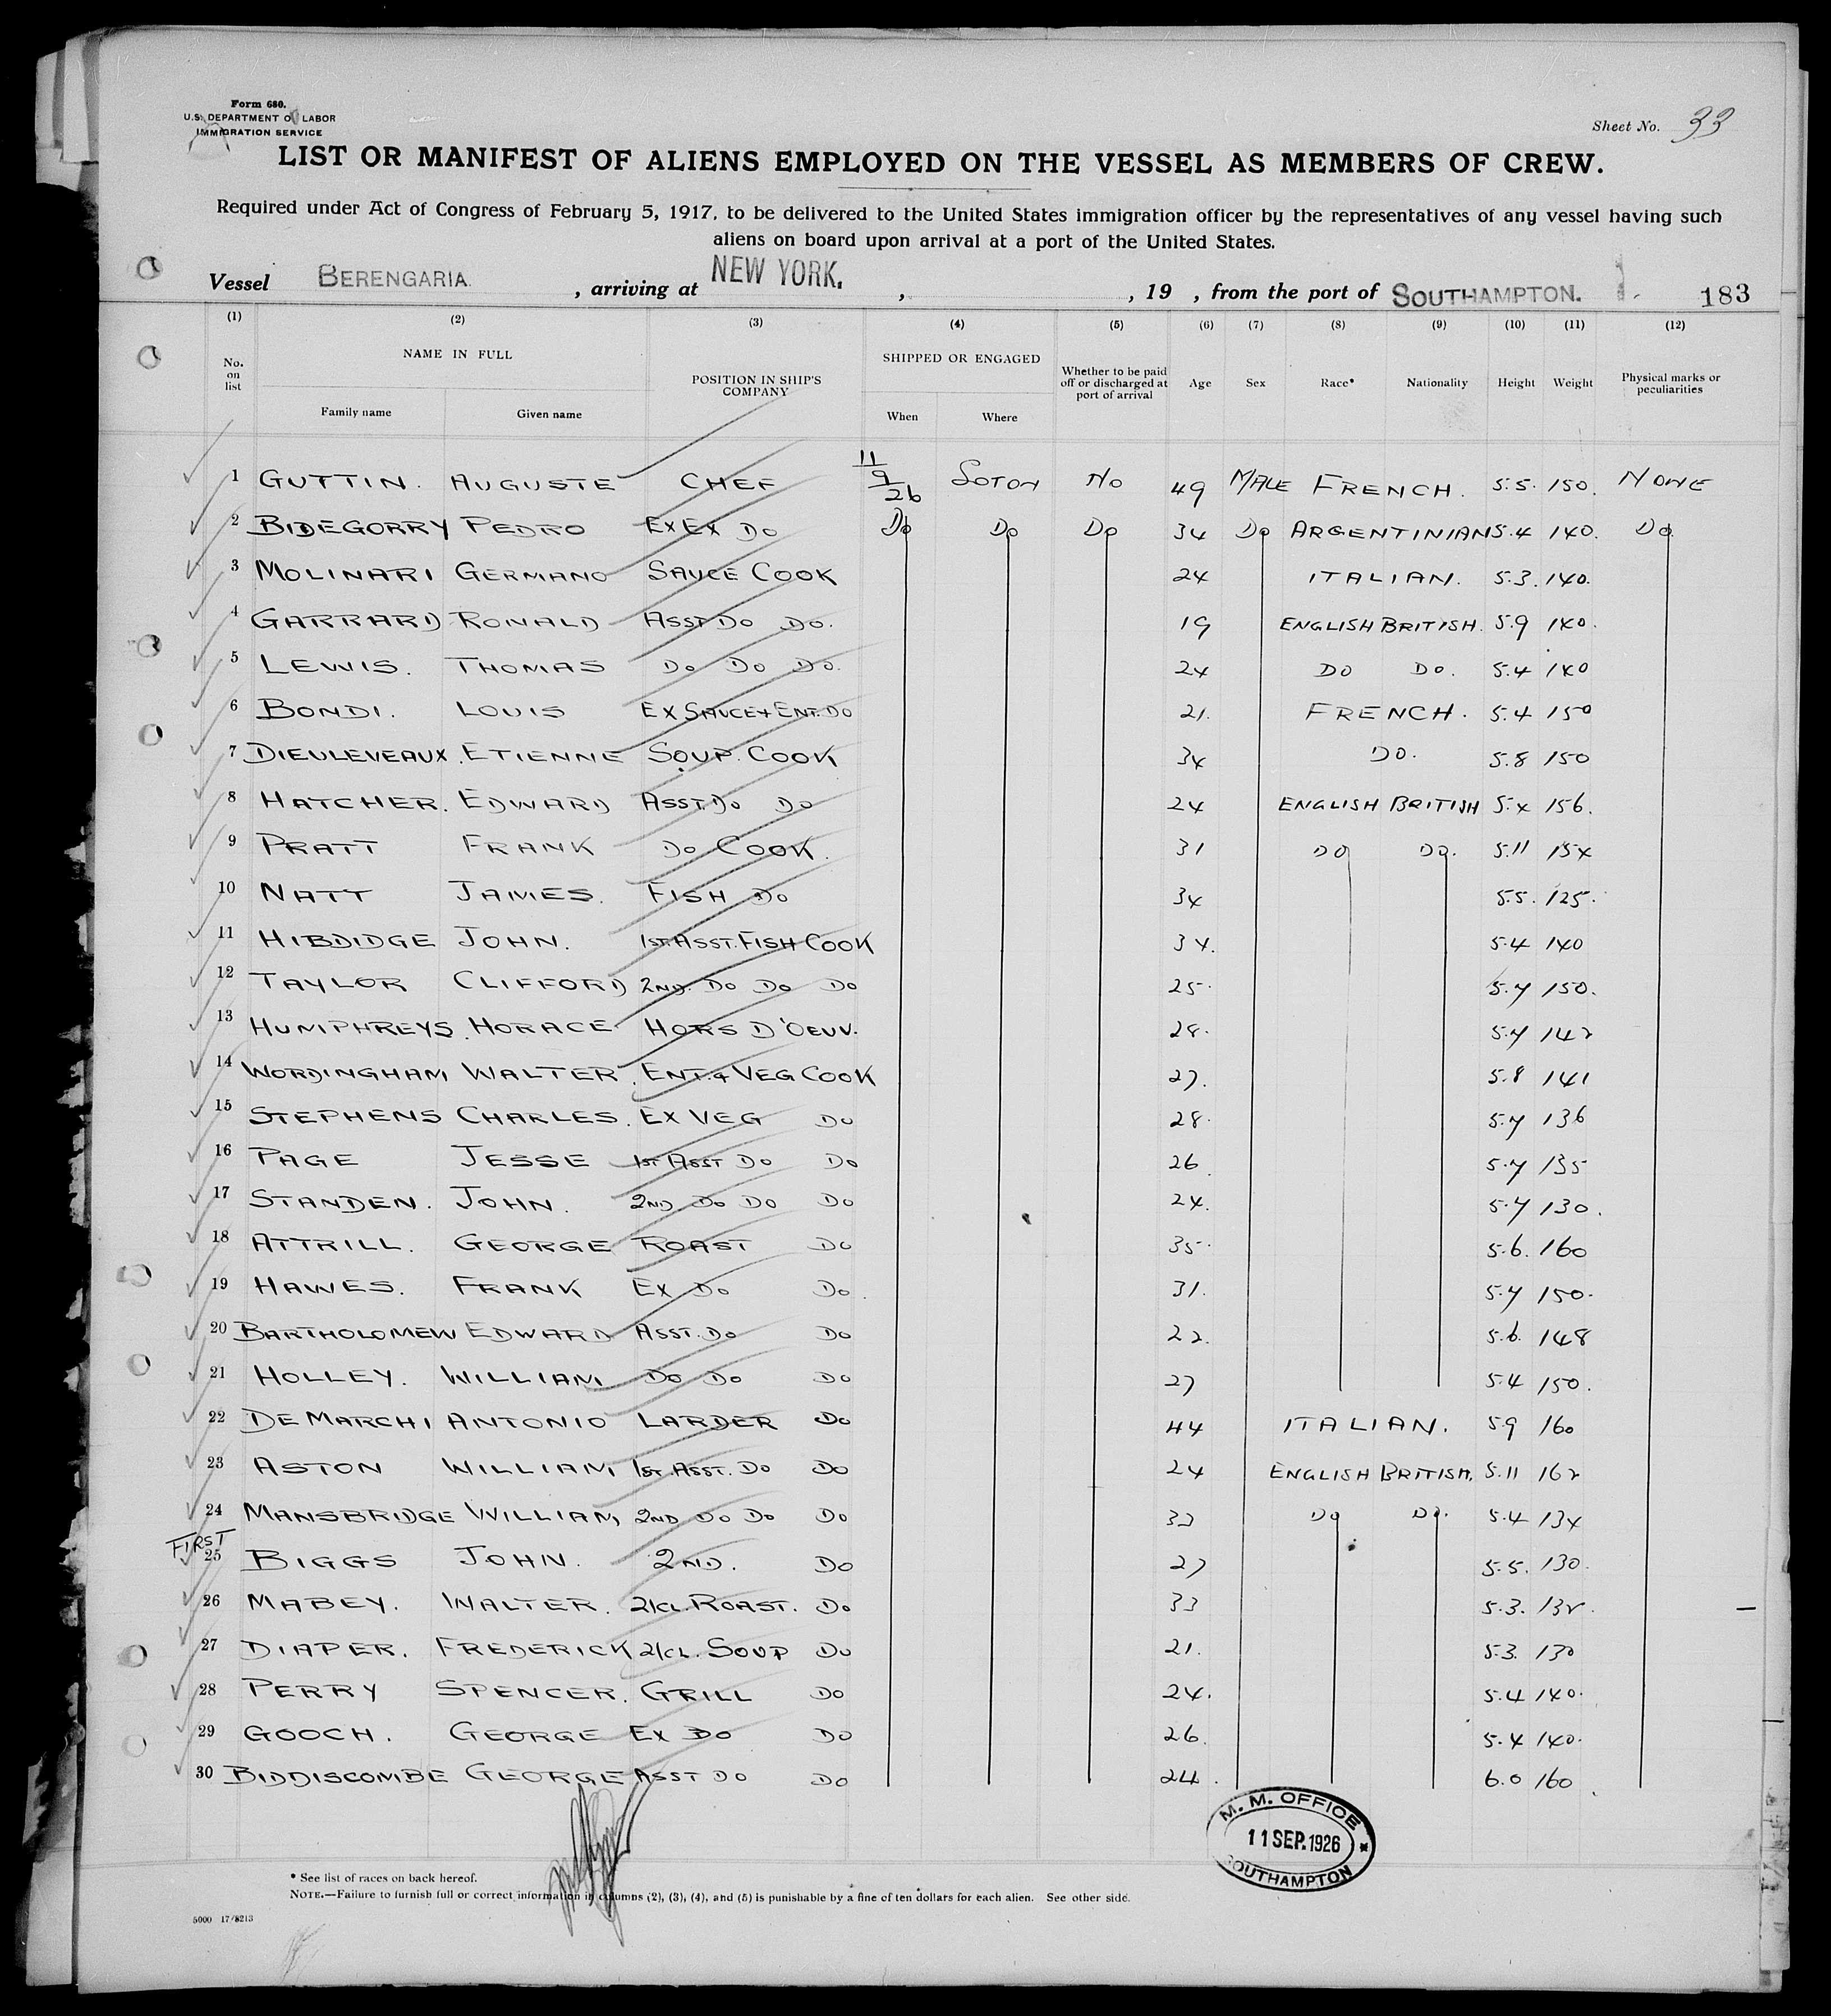 Form 680.
U.S. DEPARTMENT OF LABOR
IMMIGRATION SERVICE
Sheet No. 33
LIST OR MANIFEST OF ALIENS EMPLOYED ON THE VESSEL AS MEMBERS OF CREW.
Required under Act of Congress of February 5, 1917, to be delivered to the United States immigration officer by the representatives of any vessel having such
aliens on board upon arrival at a port of the United States.
Vessel BERENGARIA , arriving at NEW YORK. , , 19 , from the port of SOUTHAMPTON. 183
(1) (2) (3) (4) (5) (6) (7) (8) (9) (10) (11) (12)
No. on list NAME IN FULL POSITION IN SHIP'S COMPANY SHIPPED OR ENGAGED Whether to be paid off or discharged at port of arrival Age Sex Race* Nationality Height Weight Physical marks or peculiarities
Family name Given name When Where
1 GUTTIN. AUGUSTE CHEF 11/9/26 SOTON NO 49 MALE FRENCH. 5.5. 150. NONE
2 BIDEGORRY PEDRO EX EX DO DO DO DO 34 DO ARGENTINIAN 5.4 140. DO
3 MOLINARI GERMANO SAUCE COOK 24 ITALIAN. 5.3. 140.
4 GARRARD RONALD ASST DO DO. 19 ENGLISH BRITISH. 5.9 140.
5 LEWIS. THOMAS DO DO DO. 24 DO DO. 5.4 140
6 BONDI. LOUIS EX SAUCE & ENT. DO 21. FRENCH. 5.4 150
7 DIEULEVEAUX. ETIENNE SOUP. COOK 34 DO. 5.8 150
8 HATCHER. EDWARD ASST. DO DO 24 ENGLISH BRITISH 5.4 156.
9 PRATT FRANK DO COOK. 31 DO DO. 5.11 154
10 NATT JAMES. FISH DO 34 5.5. 125.
11 HIBDIDGE JOHN. 1ST. ASST. FISH COOK 34. 5.4 140
12 TAYLOR CLIFFORD 2ND. DO DO DO 25. 5.7 150.
13 HUMPHREYS. HORACE HORS D'OEUV. 28. 5.7 142
14 WORDINGHAM WALTER. ENT. & VEG COOK 27. 5.8 141
15 STEPHENS CHARLES. EX VEG DO 28. 5.7 136
16 PAGE JESSE 1ST ASST DO DO 26. 5.7 135
17 STANDEN. JOHN. 2ND DO DO DO 24. 5.7 130.
18 ATTRILL. GEORGE ROAST DO 35. 5.6. 160
19 HAWES. FRANK EX DO DO. 31. 5.7 150.
20 BARTHOLOMEW EDWARD ASST. DO DO 22. 5.6. 148
21 HOLLEY. WILLIAM DO DO DO 27 5.4 150.
22 DE MARCHI ANTONIO LARDER DO 44 ITALIAN. 5.9 160
23 ASTON WILLIAM 1ST. ASST. DO DO 24 ENGLISH BRITISH. 5.11 162
24 MANSBRIDGE WILLIAM 2ND DO DO DO 33 DO DO. 5.4 134
FIRST
25 BIGGS JOHN. 2ND. DO 27 5.5. 130.
26 MABEY. WALTER. 2/CL. ROAST. DO 33 5.3. 132.
27 DIAPER. FREDERICK 2/CL. SOUP DO 21. 5.3. 130
28 PERRY SPENCER. GRILL DO 24. 5.4 140.
29 GOOCH. GEORGE EX DO DO 26. 5.4 140.
30 BIDDISCOMBE GEORGE ASST DO DO 24. 6.0 160.
M. M. OFFICE
11 SEP. 1926
SOUTHAMPTON
* See list of races on back hereof.
NOTE.—Failure to furnish full or correct information in columns (2), (3), (4), and (5) is punishable by a fine of ten dollars for each alien. See other side.
5000 17/8213